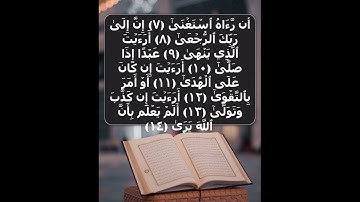 أَن رَّءَاهُ ٱسۡتَغۡنَىٰٓ (٧) إِنَّ إِلَىٰ
رَبِّكَ ٱلرُّجۡعَىٰٓ (٨) أَرَءَيۡتَ
ٱلَّذِي يَنۡهَىٰ (٩) عَبۡدًا إِذَا
صَلَّىٰٓ (١٠) أَرَءَيۡتَ إِن كَانَ
عَلَى ٱلۡهُدَىٰٓ (١١) أَوۡ أَمَرَ
بِٱلتَّقۡوَىٰٓ (١٢) أَرَءَيۡتَ إِن كَذَّبَ
وَتَوَلَّىٰٓ (١٣) أَلَمۡ يَعۡلَم بِأَنَّ
ٱللَّهَ يَرَىٰ (١٤)